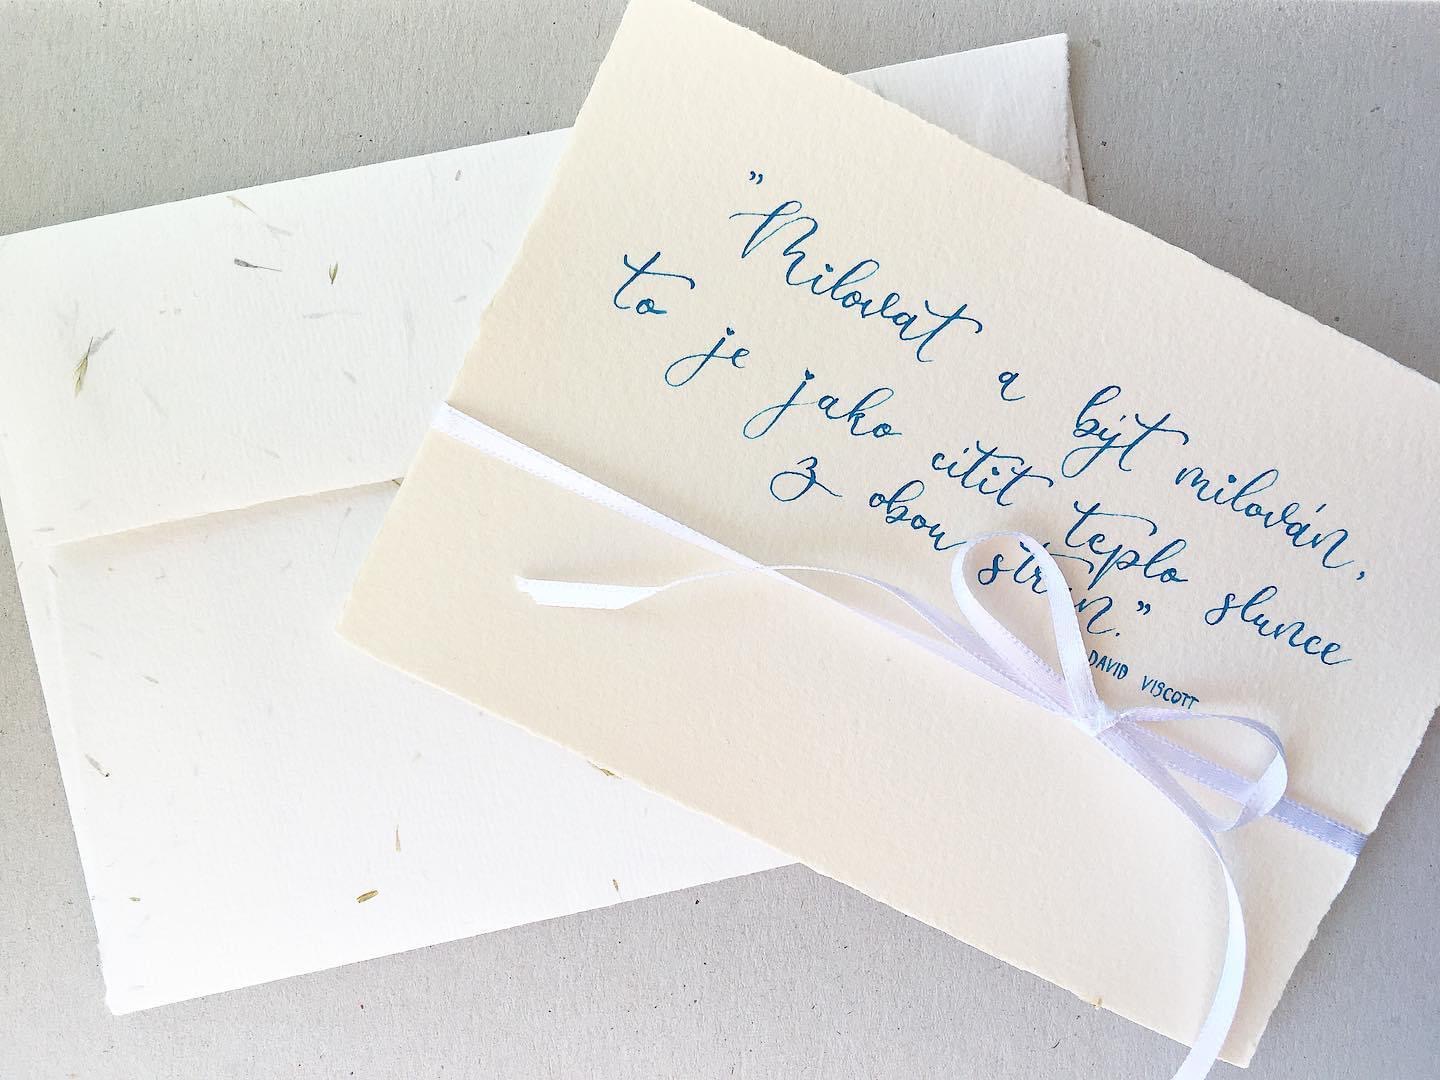 "Milovat a být milován,
to je jako cítit teplo slunce
z obou stran."
DAVID VISCOTT